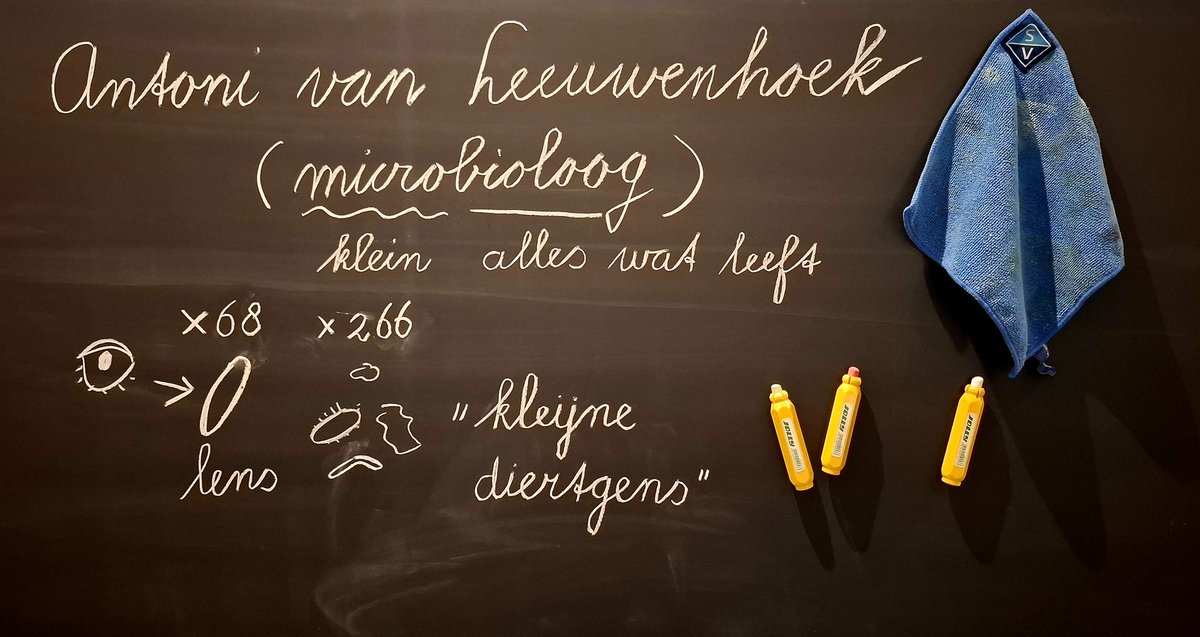 Antoni van Leeuwenhoek
(microbioloog)
klein alles wat leeft
×68 ×266
lens
"kleijne
diertgens"
S
V
JOLLY
JOLLY
JOLLY